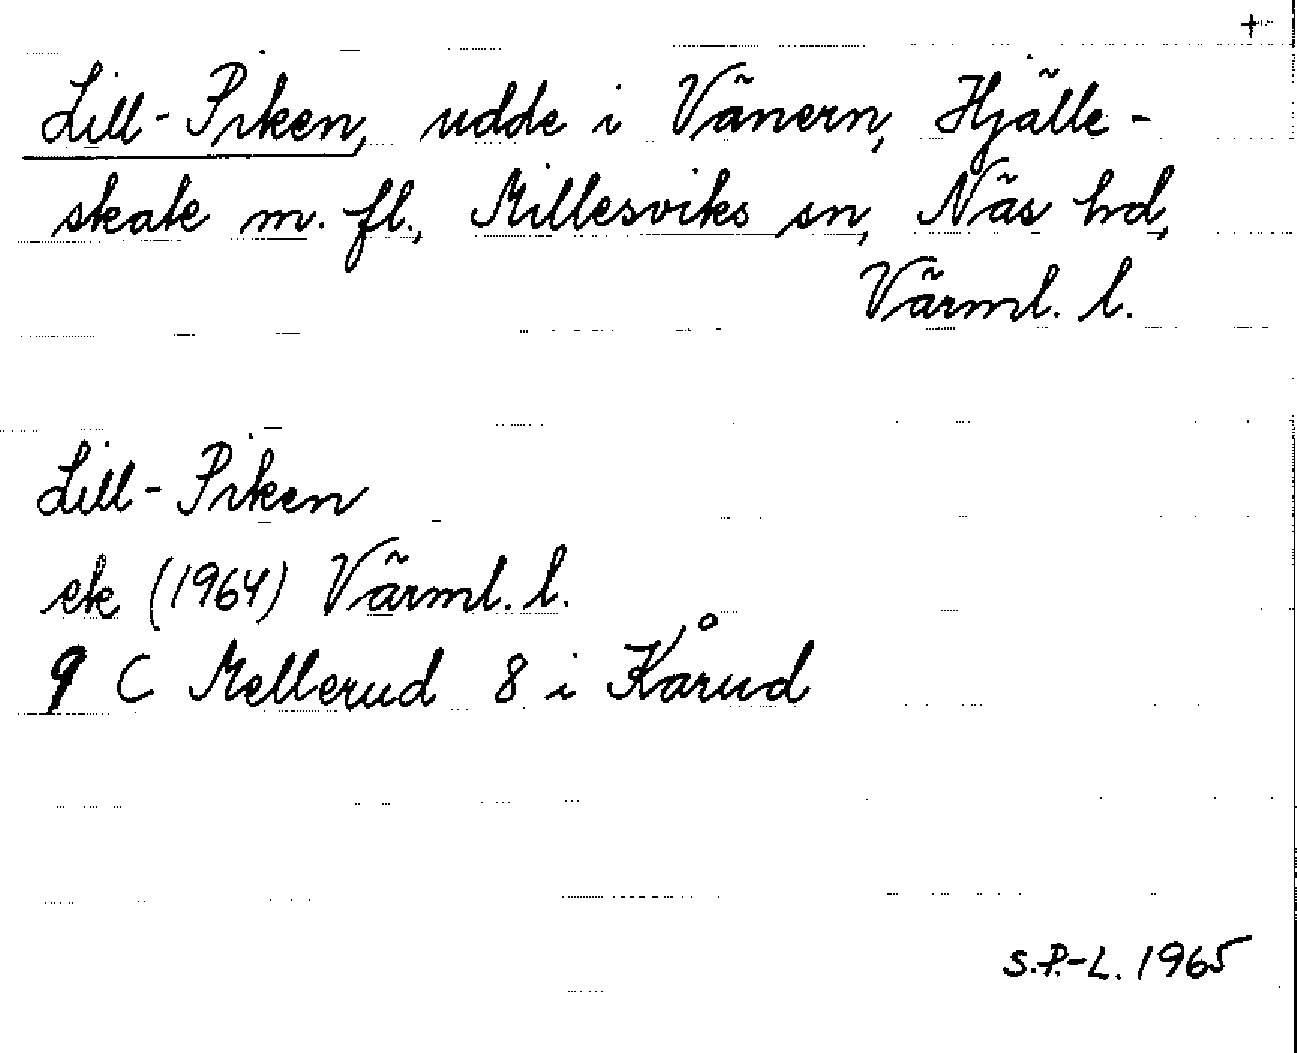 +
Lill-Piken, udde i Vänern, Hjälle-
skate m. fl., Millesviks sn, Näs hd,
Värml. l.
Lill-Piken
ek (1964) Värml. l.
9 C Mellerud 8 i Kårud
S.P.-L. 1965